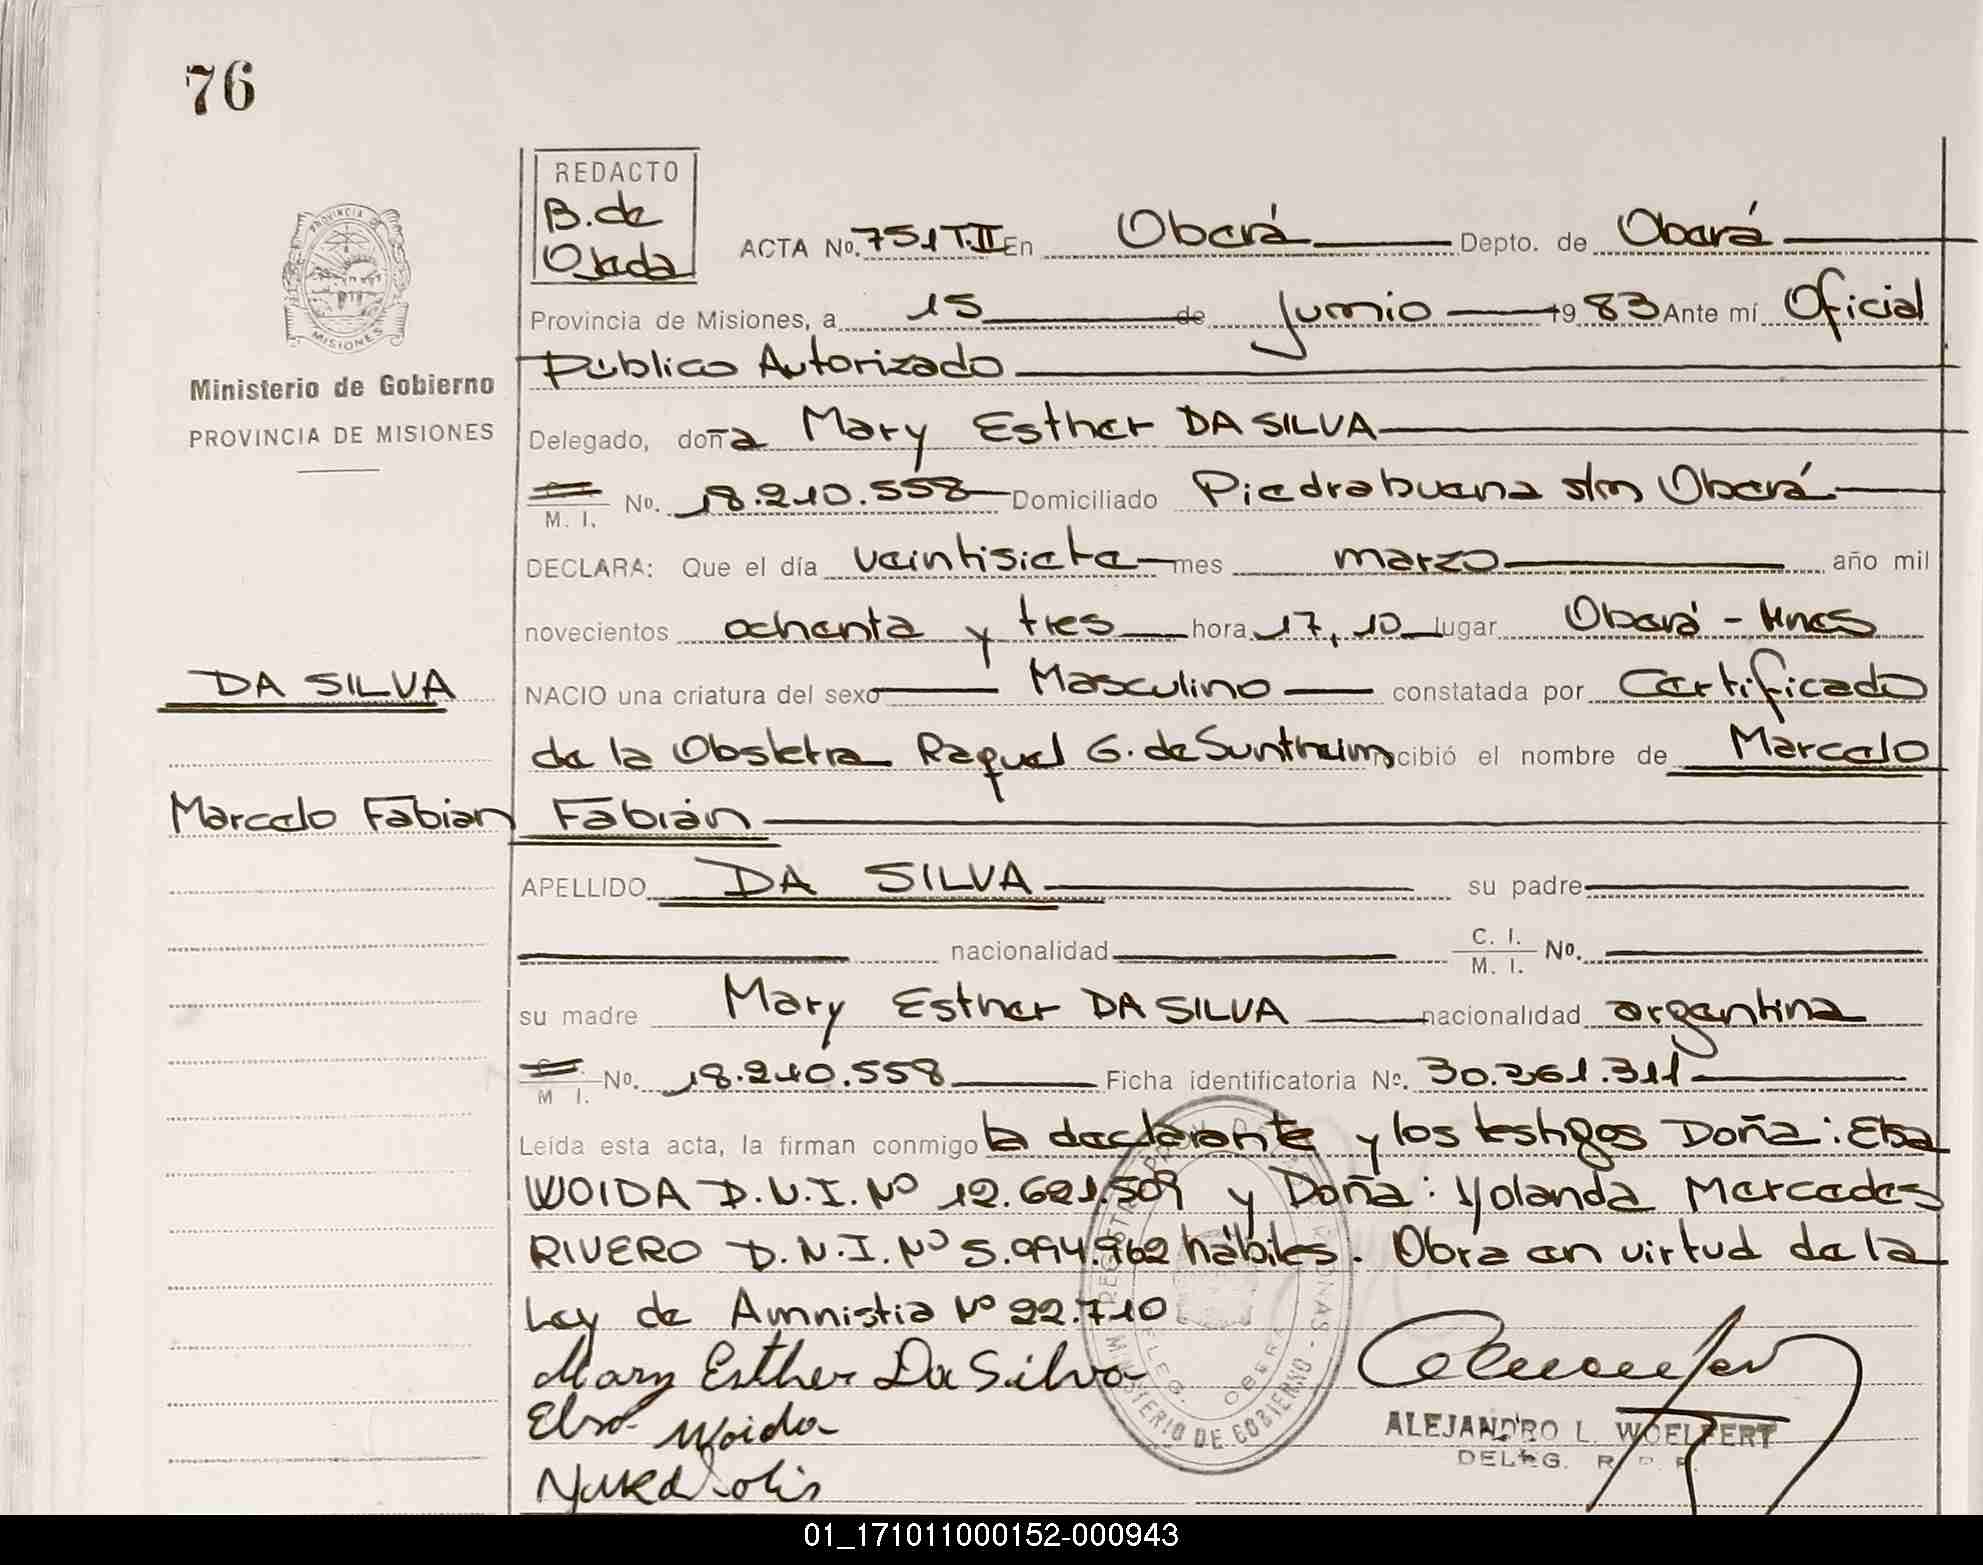 76
REDACTO
B. de
Ojeda
ACTA No. 751 T. II En Oberá Depto. de Oberá
Provincia de Misiones, a 15 de junio 1983 Ante mí Oficial
Público Autorizado
Ministerio de Gobierno
PROVINCIA DE MISIONES
Delegado, doña Mary Esther DA SILVA
M. I. No. 18.210.558 Domiciliado Piedrabuena s/n Oberá
DECLARA: Que el día veintisiete mes marzo año mil
novecientos ochenta y tres hora 17,10 lugar Oberá - Mnes
DA SILVA
NACIO una criatura del sexo Masculino constatada por Certificado
de la Obstetra Raquel G. de Suntheim recibió el nombre de Marcelo
Marcelo Fabian
Fabián
APELLIDO DA SILVA su padre
nacionalidad C. I. M. I. No.
su madre Mary Esther DA SILVA nacionalidad argentina
M. I. No. 18.210.558 Ficha identificatoria No. 30.361.311
Leída esta acta, la firman conmigo la declarante y los testigos Doña: Elsa
WOIDA D.N.I. Nº 12.621.509 y Doña: Yolanda Mercedes
RIVERO D.N.I. Nº 5.994.962 hábiles. Obra en virtud de la
Ley de Amnistia Nº 22.710
Mary Esther Da Silva
Elsa Woida
ALEJANDRO L. WOELFERT
DELEG. R. P.
PROVINCIA DE MISIONES
MINISTERIO DE GOBIERNO
DELEG. OBERA
01_171011000152-000943